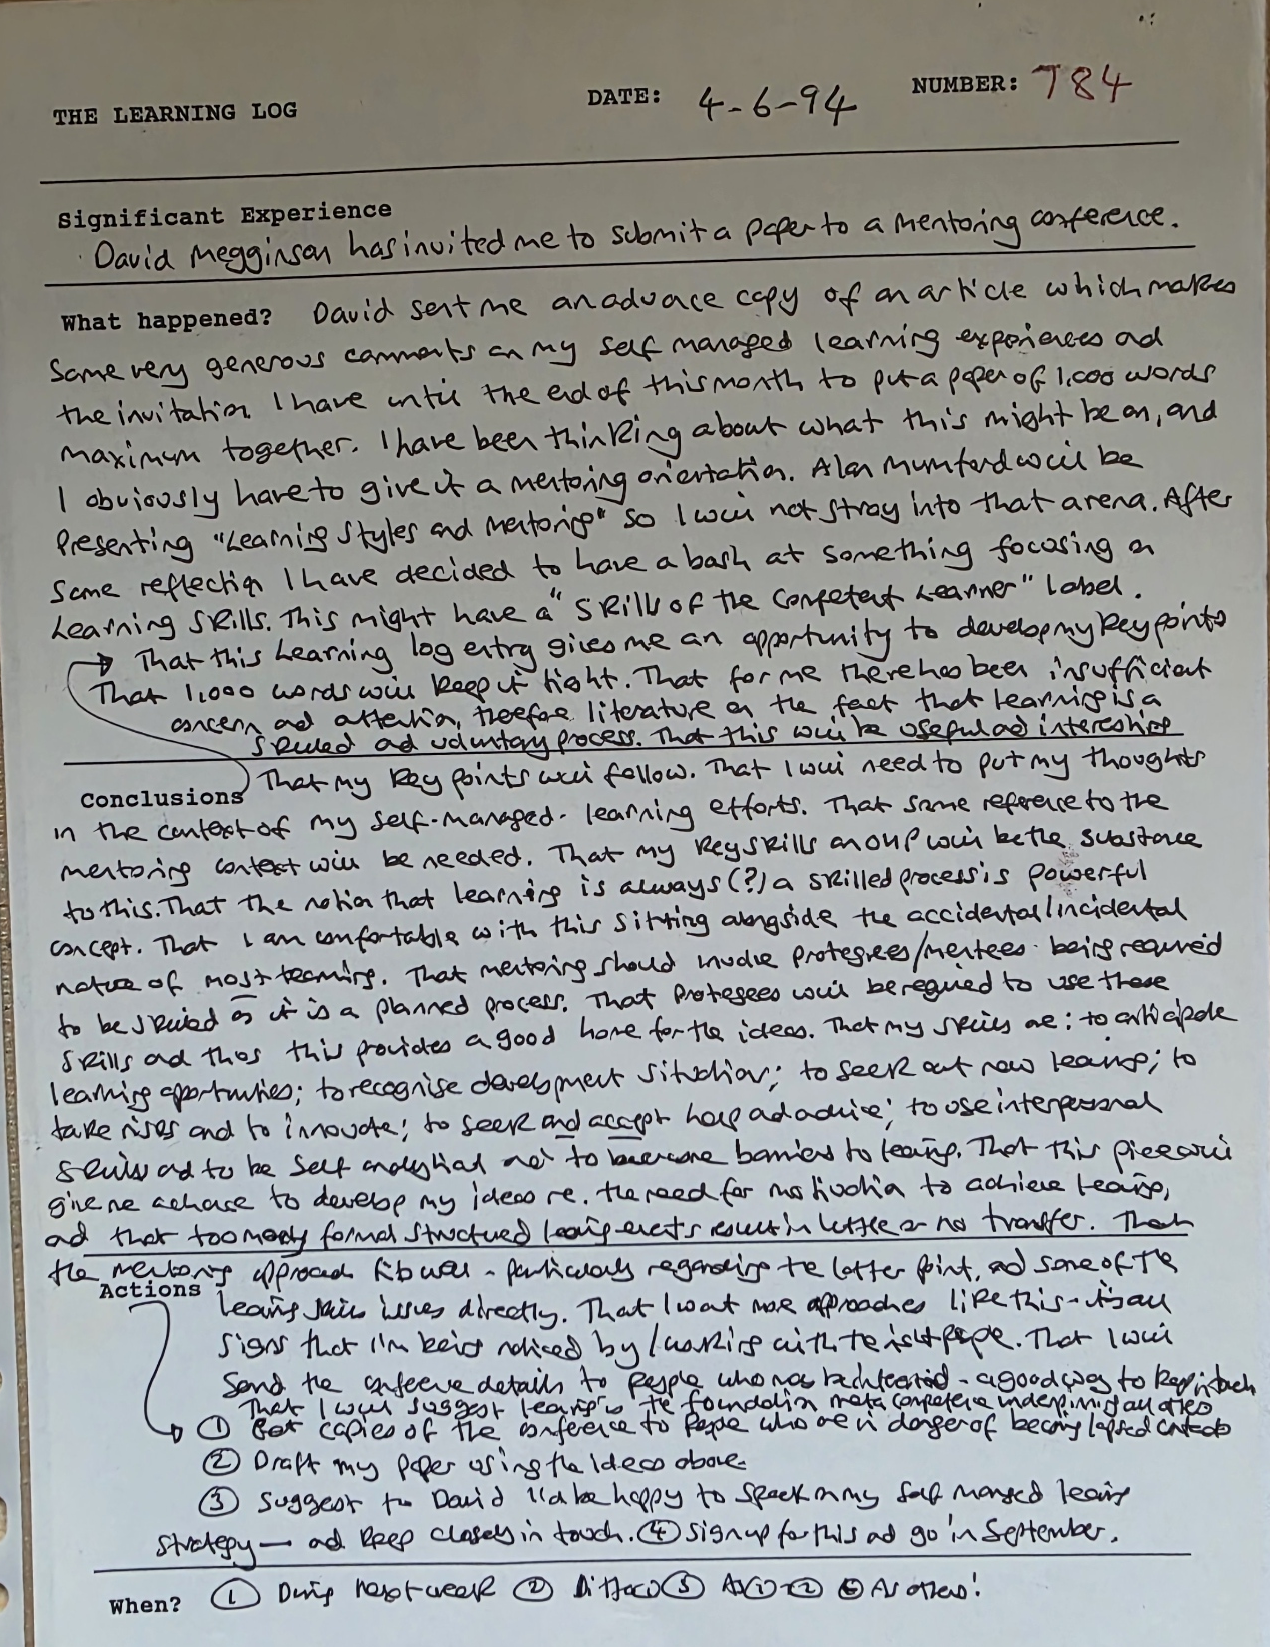 THE LEARNING LOG DATE: 4-6-94 NUMBER: 784
Significant Experience
David Megginson has invited me to submit a paper to a mentoring conference.
What happened? David sent me an advance copy of an article which makes
some very generous comments on my self managed learning experiences and
the invitation. I have until the end of this month to put a paper of 1,000 words
maximum together. I have been thinking about what this might be on, and
I obviously have to give it a mentoring orientation. Alan Mumford will be
presenting "Learning Styles and Mentoring" so I will not stray into that arena. After
some reflection I have decided to have a bash at something focusing on
Learning Skills. This might have a "Skills of the Competent Learner" label.
That this Learning log entry gives me an opportunity to develop my key points
That 1,000 words will keep it tight. That for me there has been insufficient
concern and attention, therefore literature on the fact that learning is a
skilled and voluntary process. That this will be useful and interesting
Conclusions That my key points will follow. That I will need to put my thoughts
in the context of my self-managed-learning efforts. That some reference to the
mentoring context will be needed. That my key skills will be the substance
to this. That the notion that learning is always (?) a skilled process is powerful
concept. That I am comfortable with this sitting alongside the accidental/incidental
nature of most learning. That mentoring should involve protegees/mentees being required
to be skilled as it is a planned process. That protegees will be required to use these
skills and thus this provides a good home for the ideas. That my skills are: to anticipate
learning opportunities; to recognise development situations; to seek out new learning; to
take risks and to innovate; to seek and accept help and advice; to use interpersonal
skills and to be self analytical and to overcome barriers to learning. That this piece will
give me a chance to develop my ideas re. the need for motivation to achieve learning,
and that too many formal structured learning events result in little or no transfer. That
the mentoring approach fits well - particularly regarding the latter point, and some of the
Actions learning skills issues directly. That I want more approaches like this - it's all
signs that I'm being noticed by / working with the right people. That I will
send the conference details to people who - a good way to keep in touch
That I will suggest learning is the foundation meta competence underpinning all others
① Get copies of the conference to people who are in danger of becoming lapsed contacts
② Draft my paper using the ideas above.
③ Suggest to David I'd be happy to speak on my self managed learning
strategy — and keep closely in touch. ④ Sign up for this and go in September.
When? ① During next week ② Ditto ③ As ① - ② ④ As others!